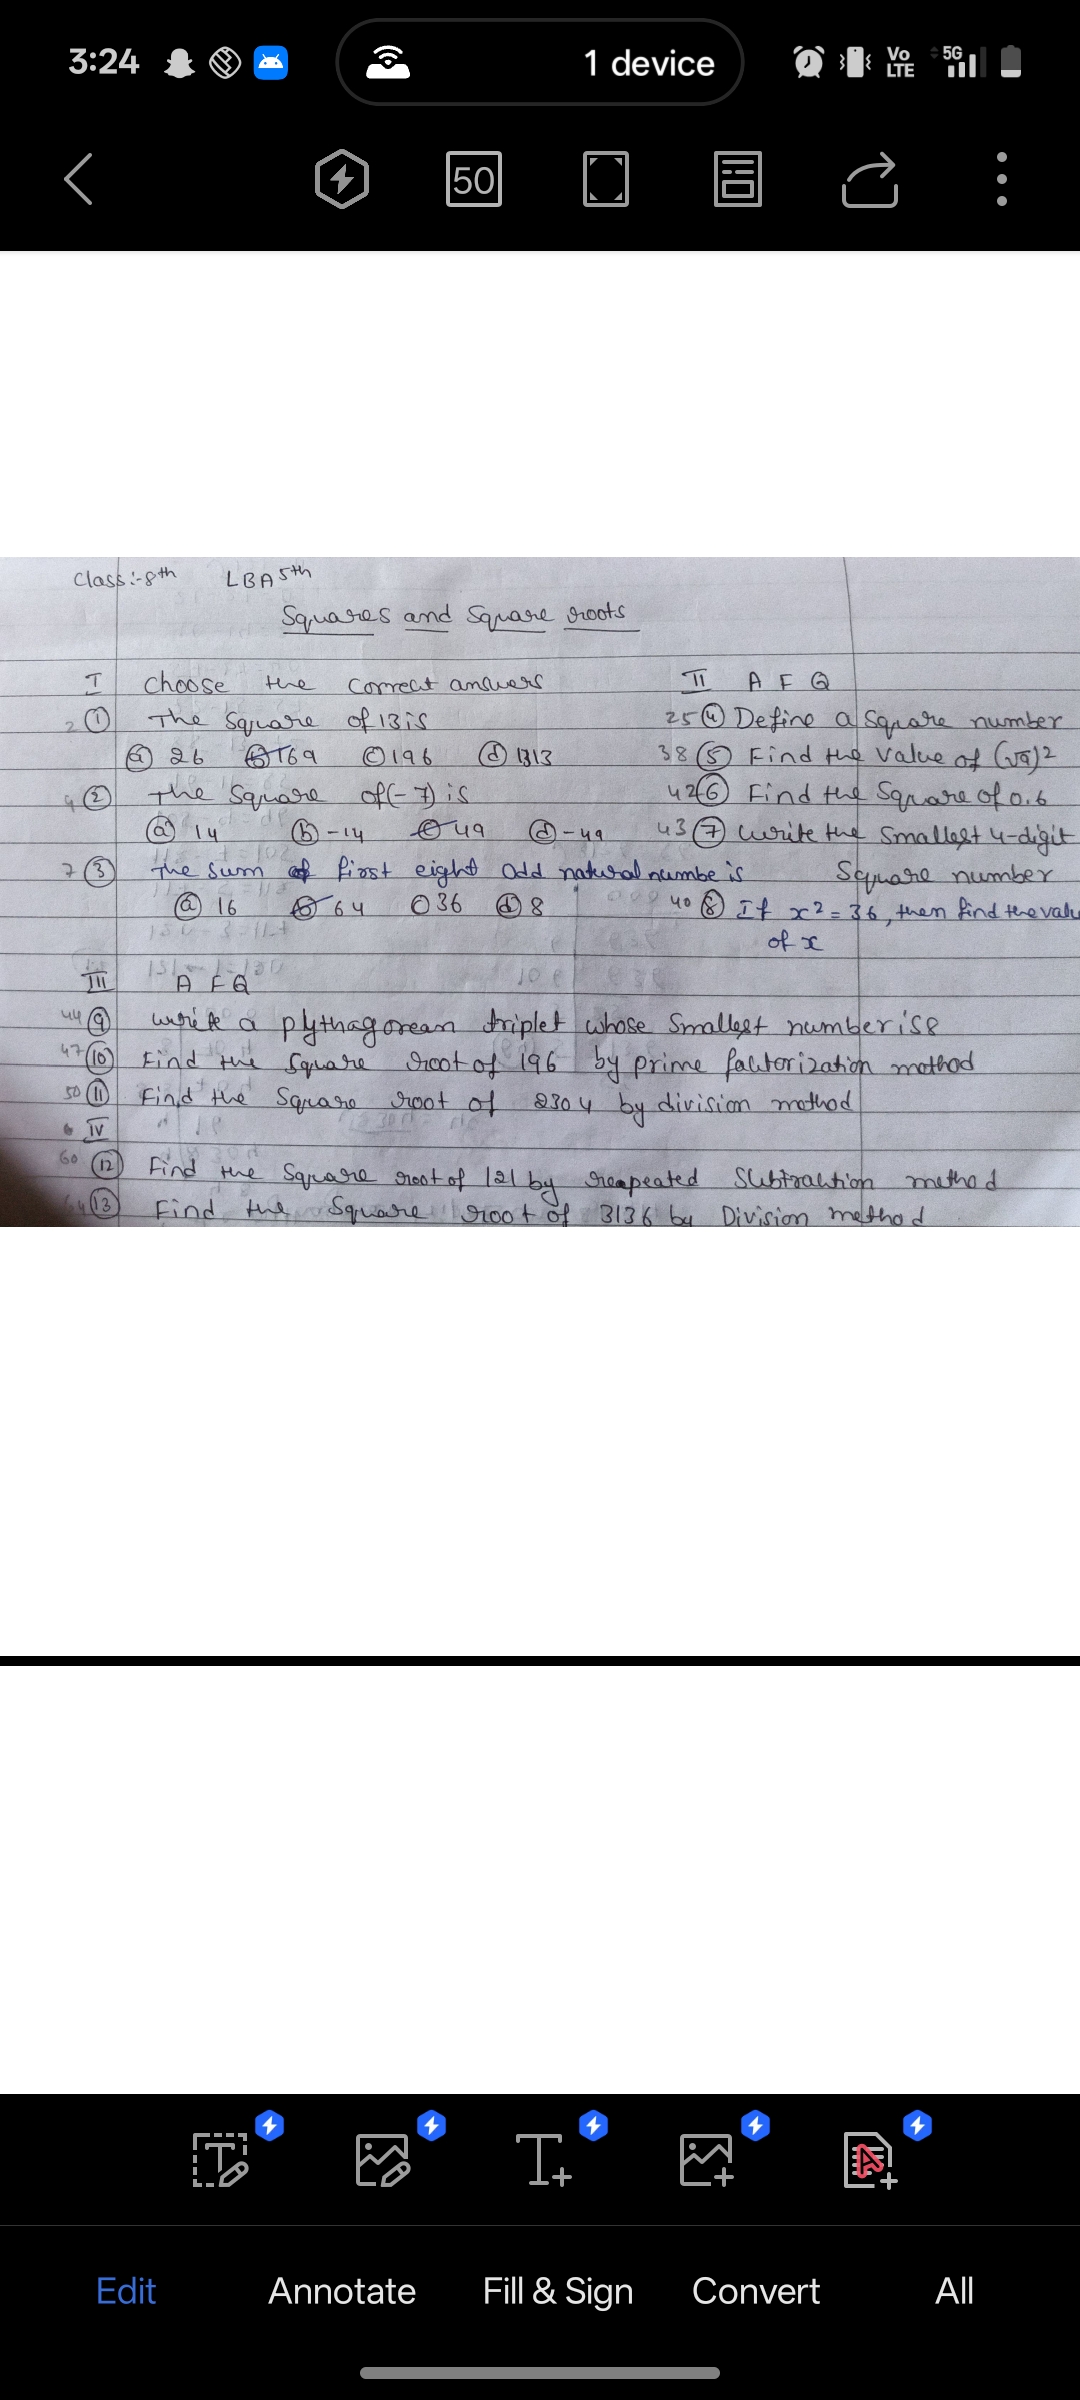 3:24
1 device
Vo LTE
5G
50
Class:-8th LBA 5th
Squares and Square roots
I choose the correct answers
2 ① The Square of 13 is
ⓐ 26 ⓑ 169 ⓒ 196 ⓓ 1313
4 ② The Square of (-7) is
ⓐ 14 ⓑ -14 ⓒ 49 ⓓ -49
7 ③ The sum of first eight odd natural numbe is
ⓐ 16 ⓑ 64 36 ⓓ 8
II A F Q
25 ④ Define a Square number
38 ⑤ Find the value of (√9)²
42 ⑥ Find the Square of 0.6
43 ⑦ write the smallest 4-digit
Square number
40 ⑧ If x² = 36, then find the valu
of x
III A F Q
44 ⑨ write a plythagorean triplet whose smallest number is 8
47 ⑩ Find the Square root of 196 by prime factorization method
50 ⑪ Find the Square root of 2304 by division method
IV
60 ⑫ Find the Square root of 121 by reapeated Subtraction method
⑬ Find the Square root of 3136 by Division method
Edit Annotate Fill & Sign Convert All